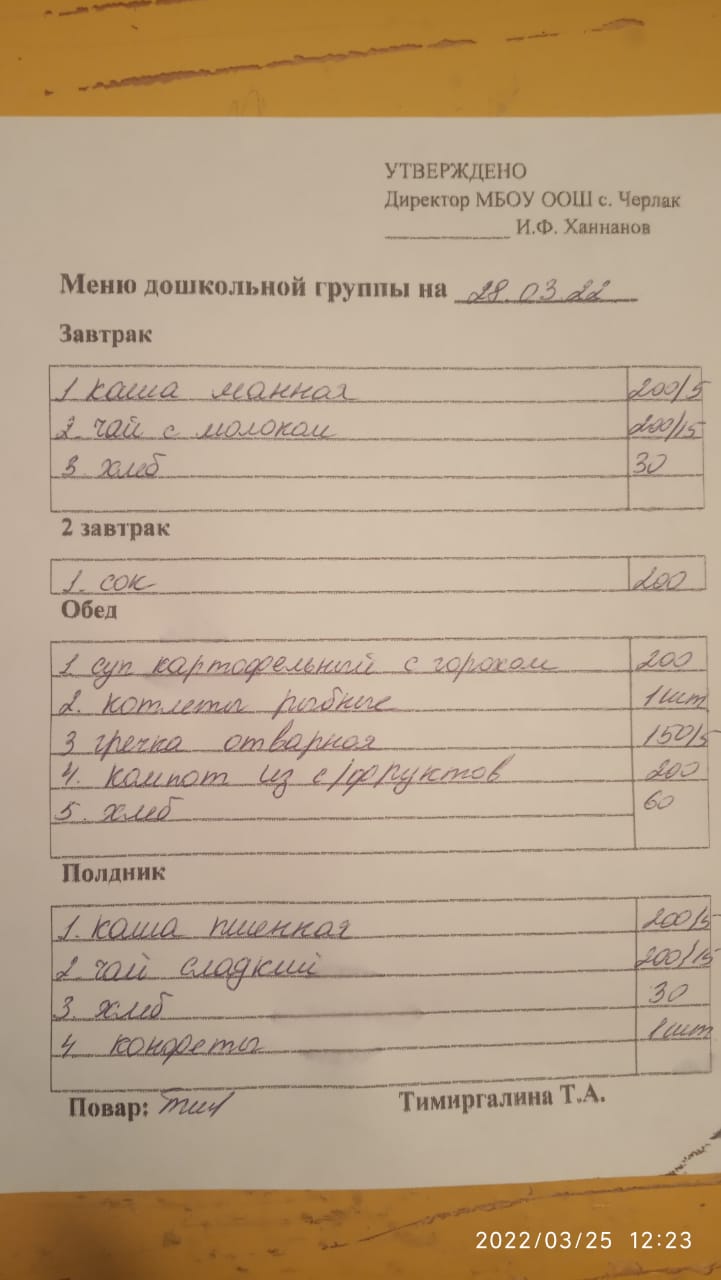 УТВЕРЖДЕНО
Директор МБОУ ООШ с. Черлак
____________ И.Ф. Ханнанов
Меню дошкольной группы на 28.03.22
Завтрак
1 каша манная 200/5
2. чай с молоком 200/15
3. хлеб 30
2 завтрак
1. сок 200
Обед
1. суп картофельный с горохом 200
2. котлеты рыбные 1шт
3 гречка отварная 150/5
4. компот из с/фруктов 200
5. хлеб 60
Полдник
1. каша пшенная 200/5
2. чай сладкий 200/15
3. хлеб 30
4 конфеты 1шт
Повар: Тимиргалина Т.А.
2022/03/25 12:23